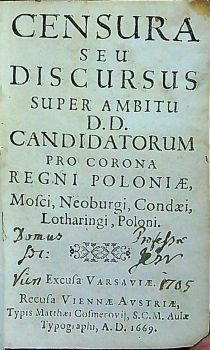 CENSURA
SEU
DISCURSUS
SUPER AMBITU
D.D.
CANDIDATORUM
PRO CORONA
REGNI POLONIÆ,
Mosci, Neoburgi, Condæi,
Lotharingi, Poloni.
Domus Professæ
Soc: Jesu
Vien 1705
Excusa VARSAVIÆ.
Recusa VIENNÆ AVSTRIÆ,
Typis Matthæi Cosmerovij, S.C.M. Aulæ
Typographi, A.D. 1669.